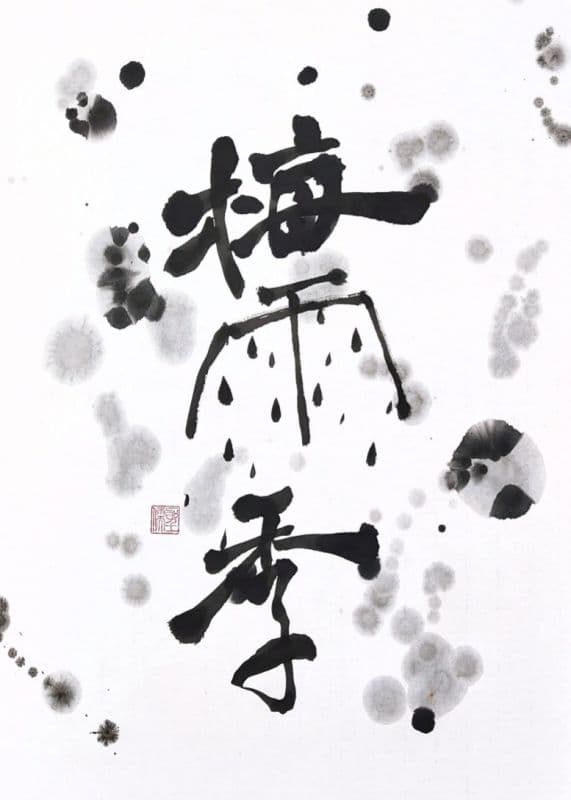 梅雨季